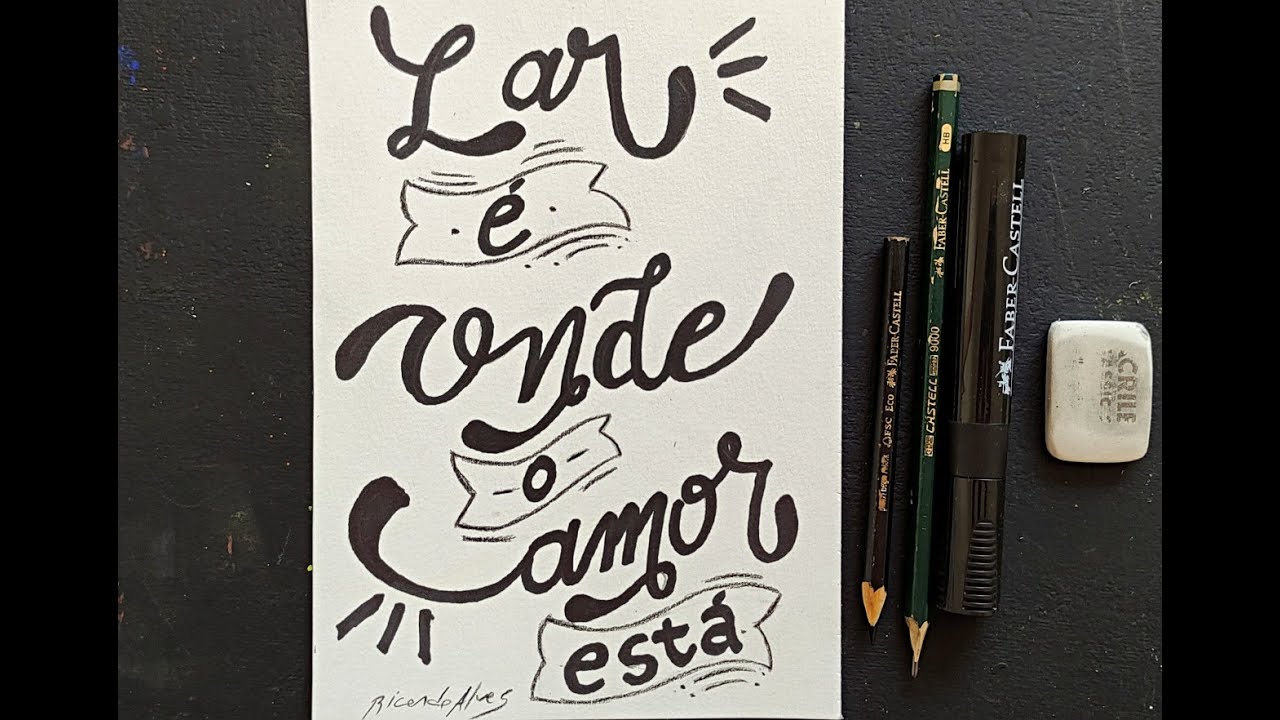 Lar
é
onde
o
amor
está
Ricardo Alves
HB
FABER-CASTELL
CASTELL 9000
FABER-CASTELL
FSC Eco FABER CASTELL